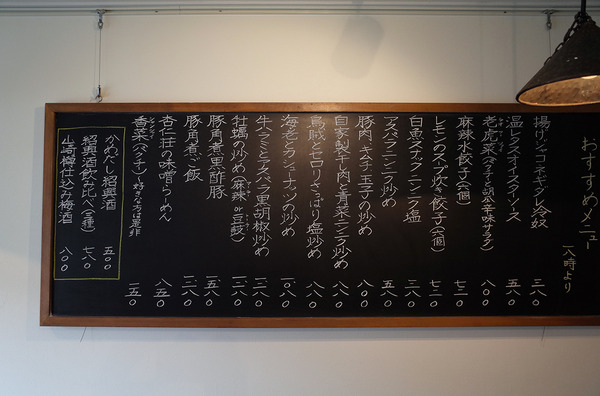 おすすめメニュー 一八時より
揚げジャコネギダレ冷奴 三八〇
温レタスオイスターソース 五八〇
老虎菜(パクチーと胡瓜辛味サラダ) 八〇〇
麻辣水餃子(六個) 七二〇
レモンのスープ炊き餃子(六個) 七二〇
白魚スナップニンニク塩
アスパラニンニク炒め 五八〇
豚肉キムチ玉子の炒め 八〇〇
自家製干し肉と青菜ニンニク炒め 八八〇
烏賊とセロリさっぱり塩炒め 八八〇
海老とカシューナッツの炒め 一〇八〇
牛ハラミとアスパラ黒胡椒炒め 一二八〇
牡蠣の炒め(麻辣or豆豉) 一二八〇
豚角煮黒酢豚 一五八〇
豚角煮ご飯 一二八〇
杏仁荘の味噌らーめん 八五〇
香菜(パクチー)好きな方は是非 一五〇
かめだし紹興酒 五〇〇
紹興酒飲み比べ(三種) 七八〇
山崎樽仕込み梅酒 八〇〇